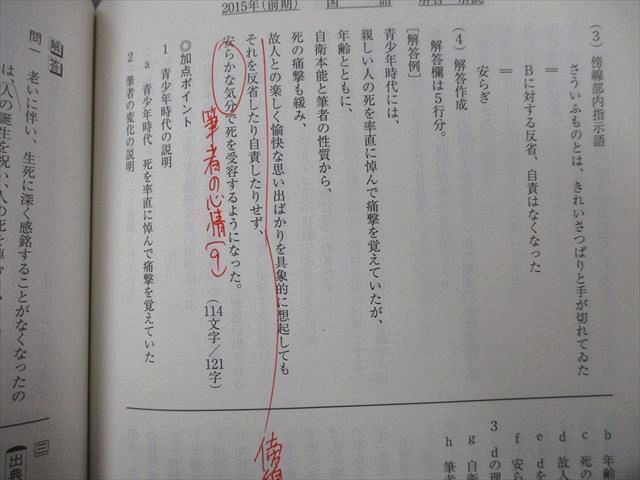 2015年(前期) 国 語 解答・解説
(3) 傍線部内指示語
さういふものとは、きれいさつぱりと手が切れてゐた
＝
Bに対する反省、自責はなくなった
＝
安らぎ
(4) 解答作成
解答欄は5行分。
[解答例]
青少年時代には、
親しい人の死を率直に悼んで痛撃を覚えていたが、
年齢とともに、
自衛本能と筆者の性質から、
死の痛撃も緩み、
故人との楽しく愉快な思い出ばかりを具象的に想起しても
それを反省したり自責したりせず、
安らかな気分で死を受容するようになった。
(114文字/121字)
筆者の心情(9)
傍線
◎加点ポイント
1 青少年時代の説明
a 青少年時代 死を率直に悼んで痛撃を覚えていた
2 筆者の変化の説明
b 年齢
c 死の
d 故人
e dを
f 安ら
3 dの理
g 自衛
h 筆者
解答
問一 老いに伴い、生死に深く感銘することがなくなったの
は、人の誕生を祝い、人の死を
三
出典